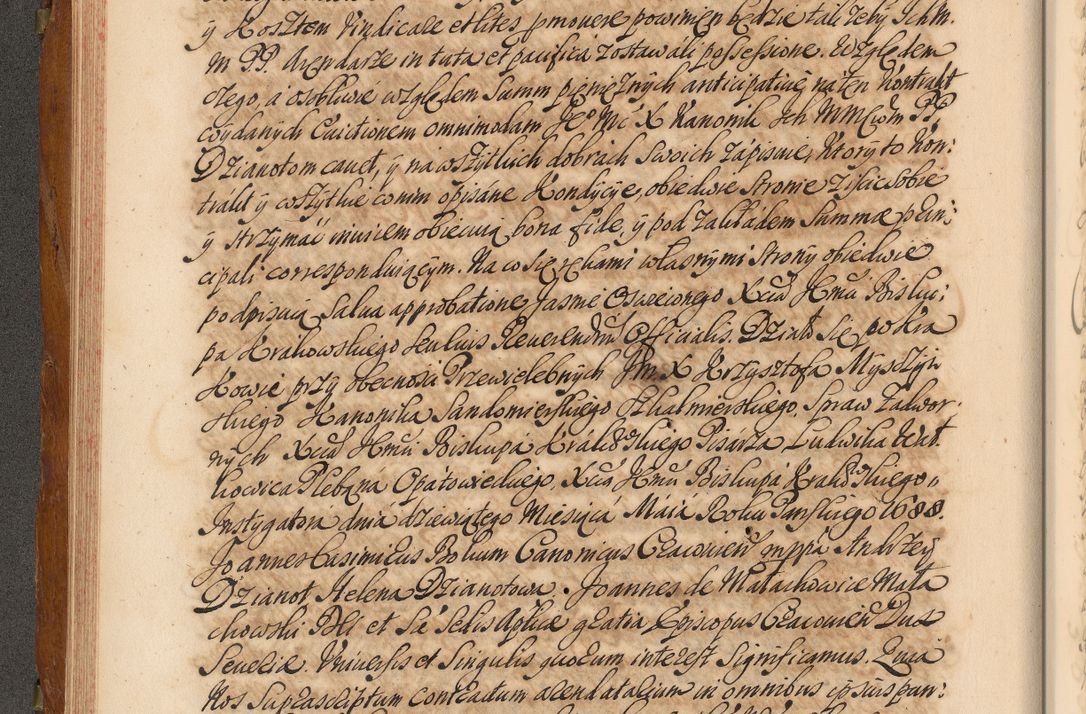 ÿ Kosztem Vindicare et lites promovere powinien będzie tali żeby Ichm:
m PP. Arendarze in tuta et pacifica zostawali possessione. Względem
czego, á osobliwie względem Summ pieniężnych anticipative na ten Kontrakt
wydanych Euictionem omnimodam Je⁰ Mć X Kanonik Ich MMciom PP.
Dzianotom cauet, ÿ na wszytkich dobrach swoich zápisuie, Ktory to Kon:
trákt ÿ wszytkie w nim opisáne Kondycye, obiedwie Stronie ziscić sobie
ÿ strzymáć inuicem obiecuią bona fide, ÿ pod zakładem Summæ prin:
cipali correspònduiącym. Na co się rękami własnymi Strony obiedwie
podpisuią Salua approbatione Jasnie Oswieconego Xcia Jmci Bisku:
pa Krakowskiego seu eius Reuerendissimi Officialis. Działo się w Kra
kowie przy obecnosci Przewielebnych Jm X Krzysztofa Myszyń
skiego Kanonika Sandomierskiego Skalmierskiego, Spraw Zadwor:
nych Xcia Jmci Biskupá Krakowskiego Pisárza Ludwika Wat
kowica Plebana Opátowieckiego, Xcia Jmci Biskupá Krakowskiego
Instygatorá dniá dziewiątego Miesiąca Máia Roku Panskiego 1688.
Joannes Casimirus Bokum Canonicus Cracouien mppa Andrzey
Dzianot Helena Dzianotowa. Joannes de Małachowice Mała
chowski Dei et Sæ Sedis Aplicæ gratia Episcopus Cracouien Dux
Seueriæ. Vniuersis et Singulis quorum interest Significamus. Quia
Nos Suprascriptum contractum arendatarium in omnibus ipsius pun: